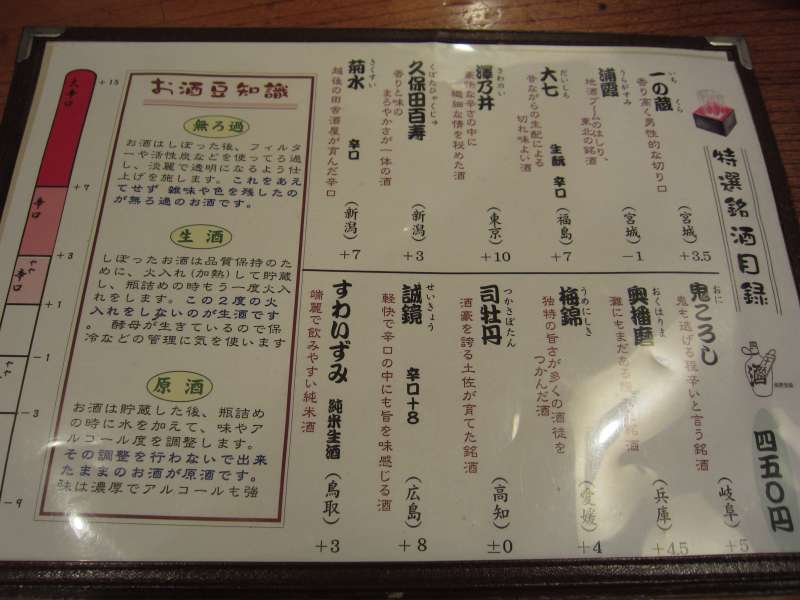 特選銘酒目録
四五〇円
いち くら
一の蔵
香り高く男性的な切り口
(宮城)
+3.5
うらがすみ
浦霞
地酒ブームのはしり、
東北の銘酒
(宮城)
-1
だいしち
大七
生酛 辛口
昔ながらの生酛による
切れ味よい酒
(福島)
+7
さわのい
澤乃井
豪快な辛さの中に
繊細な情を秘めた酒
(東京)
+10
くぼたひゃくじゅ
久保田百寿
香りと味の
まろやかさが一体の酒
(新潟)
+3
きくすい
菊水
辛口
越後の田舎酒屋が育んだ辛口
(新潟)
+7
おに
鬼ころし
鬼も逃げる程辛いと言う銘酒
(岐阜)
+5
おくはりま
奥播磨
(兵庫)
+4.5
うめにしき
梅錦
独特の旨さが多くの酒徒を
つかんだ酒
(愛媛)
+4
つかさぼたん
司牡丹
酒豪を誇る土佐が育てた銘酒
(高知)
±0
せいきょう
誠鏡
辛口+8
軽快で辛口の中にも旨を味感じる酒
(広島)
+8
すわいずみ 純米生酒
端麗で飲みやすい純米酒
(鳥取)
+3
お酒豆知識
無ろ過
お酒はしぼった後、フィルタ
ーや活性炭などを使ってろ過
し、淡麗で透明になるよう仕
上げを施します。これをあえ
てせず 雑味や色を残したの
が無ろ過のお酒です。
生酒
しぼったお酒は品質保持のた
めに、火入れ(加熱)して貯蔵
し、瓶詰めの時もう一度火入
れをします。この2度の火
入れをしないのが生酒です
。 酵母が生きているので保
冷などの管理に気を使います
原酒
お酒は貯蔵した後、瓶詰め
の時に水を加えて、味やア
ルコール度を調整します。
その調整を行わないで出来
たままのお酒が原酒です。
味は濃厚でアルコールも強
+15
大辛口
+7
辛口
+3
やや辛口
+1
-1
-3
-9